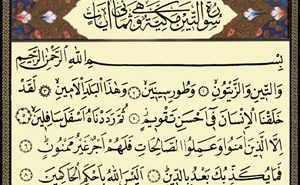 سُورَةُ التِّينِ مَكِّيَّةٌ وَهِيَ ثَمَانِي آيَاتٍ
بِسْمِ اللهِ الرَّحْمٰنِ الرَّحِيمِ
وَالتِّينِ وَالزَّيْتُونِ ۝ وَطُورِ سِينِينَ ۝ وَهٰذَا الْبَلَدِ الْأَمِينِ ۝ لَقَدْ
خَلَقْنَا الْإِنْسَانَ فِي أَحْسَنِ تَقْوِيمٍ ۝ ثُمَّ رَدَدْنَاهُ أَسْفَلَ سَافِلِينَ ۝
إِلَّا الَّذِينَ آمَنُوا وَعَمِلُوا الصَّالِحَاتِ فَلَهُمْ أَجْرٌ غَيْرُ مَمْنُونٍ ۝
فَمَا يُكَذِّبُكَ بَعْدُ بِالدِّينِ ۝ أَلَيْسَ اللهُ بِأَحْكَمِ الْحَاكِمِينَ ۝